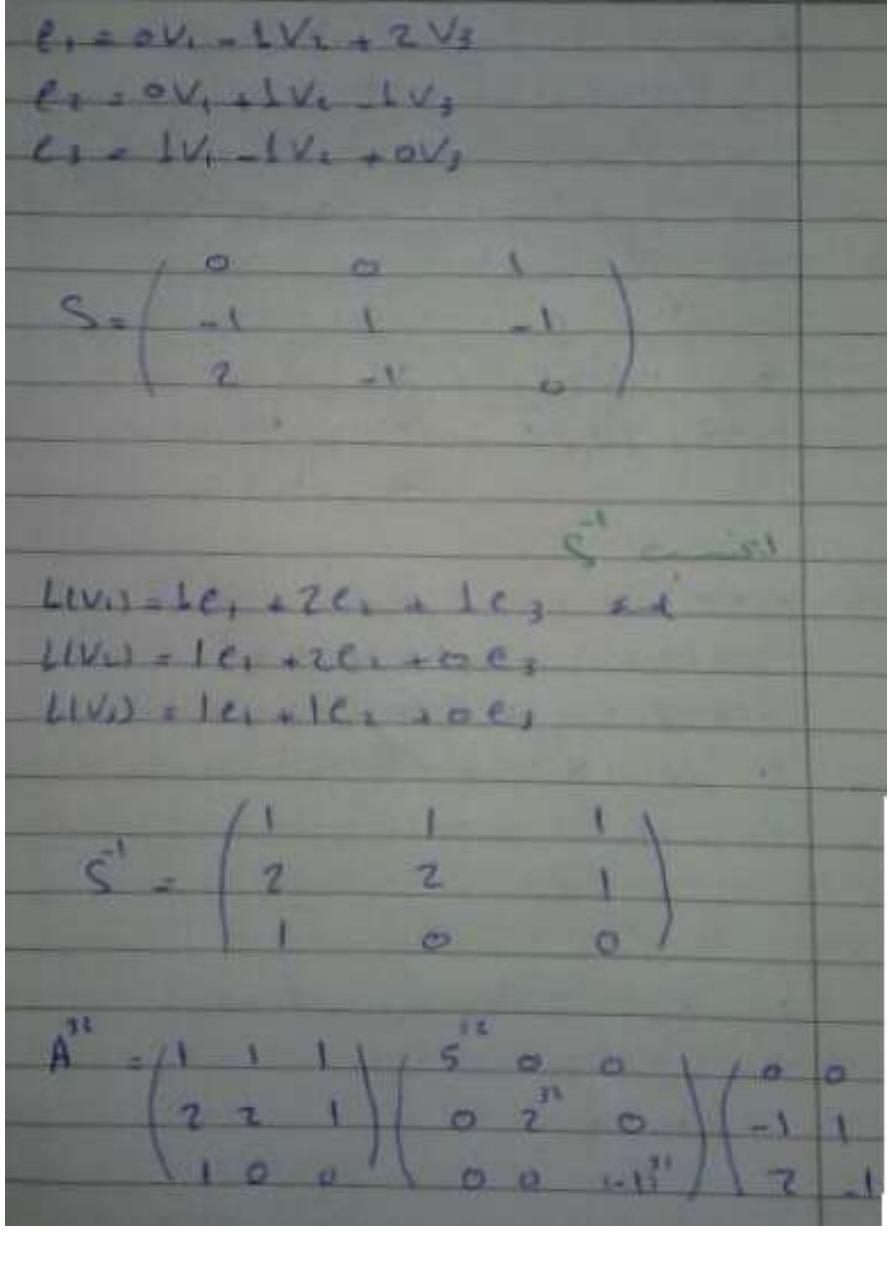 e₁ = 0V₁ - 1V₂ + 2V₃
e₂ = 0V₁ + 1V₂ - 1V₃
e₃ = 1V₁ - 1V₂ + 0V₃
0 0 1
S = -1 1 -1
2 -1 0
S⁻¹
L(V₁) = 1e₁ + 2e₂ + 1e₃
L(V₂) = 1e₁ + 2e₂ + 0e₃
L(V₃) = 1e₁ + 1e₂ + 0e₃
1 1 1
S⁻¹ = 2 2 1
1 0 0
A³² = 1 1 1 5³² 0 0 0 0
2 2 1 0 2³² 0 -1 1
1 0 0 0 0 (-1)³² 2 -1